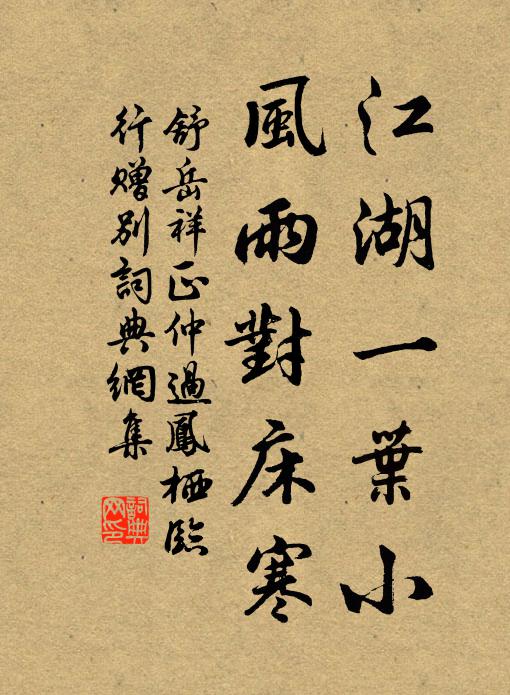 江湖一葉小
風雨對床寒
舒岳祥正仲過鳳栖臨
行贈別詞典網集
詞典
网印